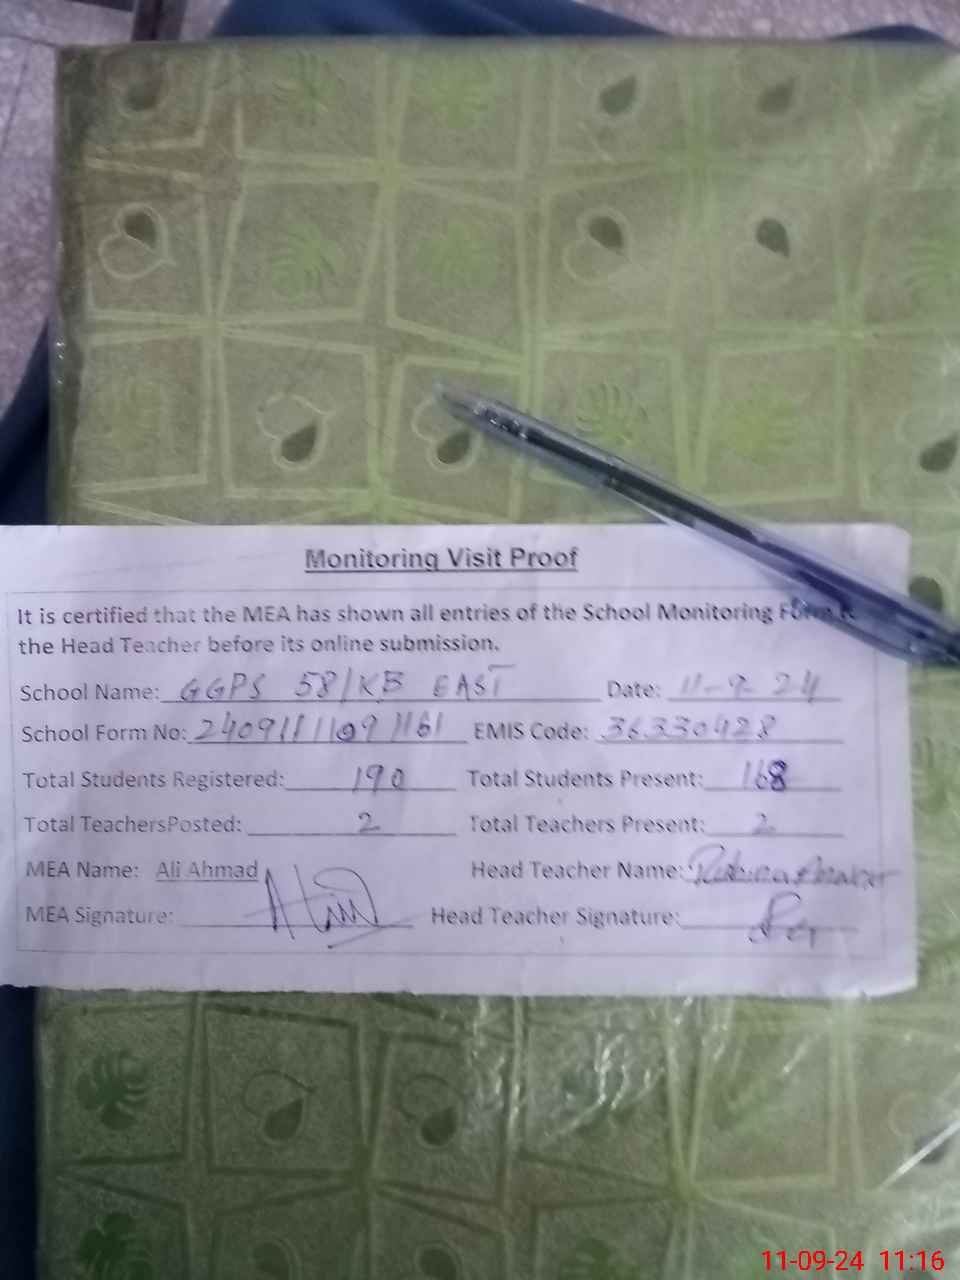 Monitoring Visit Proof
It is certified that the MEA has shown all entries of the School Monitoring Form to
the Head Teacher before its online submission.
School Name: GGPS 58/KB EAST Date: 11-9-24
School Form No: EMIS Code: 36330428
Total Students Registered: 190 Total Students Present: 168
Total TeachersPosted: 2 Total Teachers Present: 2
MEA Name: Ali Ahmad Head Teacher Name:
MEA Signature: Head Teacher Signature:
11-09-24 11:16